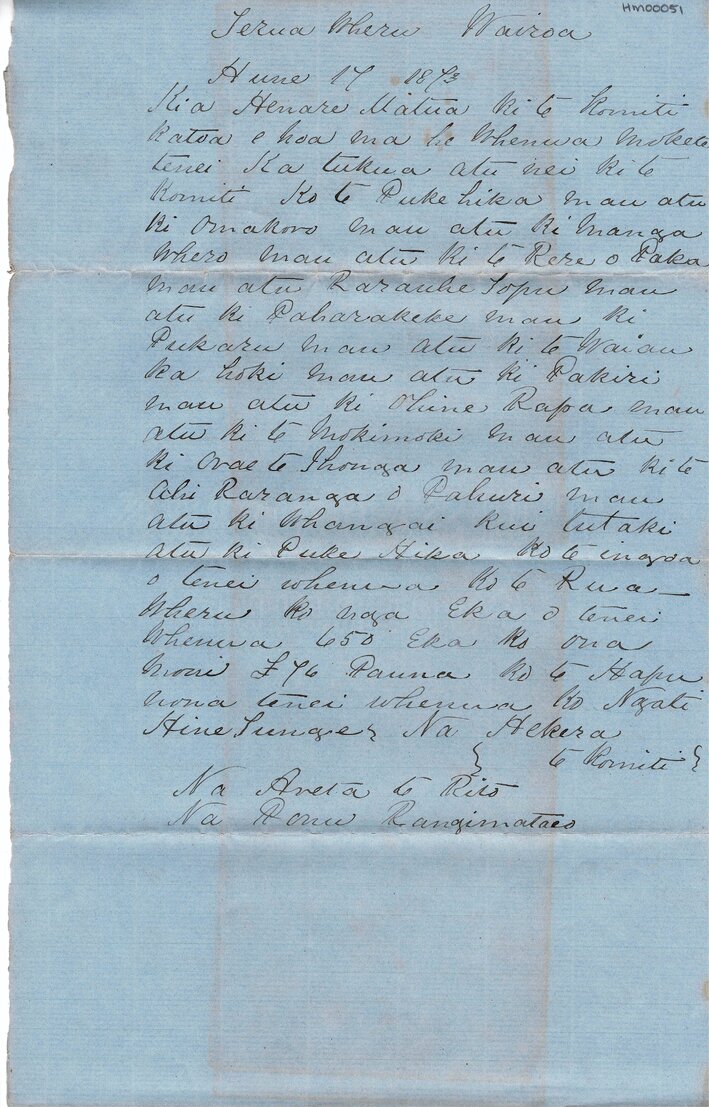 HM00051
Terua Wheru Wairoa
Hune 17 1873
Kia Henare Matua ki te Komiti
katoa e hoa ma he whenua mokete
tenei Ka tukua atu nei ki te
Komiti Ko te Pukehika mau atu
ki Omakoro mau atu ki Manga
whero mau atu ki te Rere o Paka
mau atu Rarauhe Topu mau
atu ki Paharakeke mau ki
Pukaru mau atu ki te Waiau
ka hoki mau atu ki Pakiri
mau atu ki Ohine Rapa mau
atu ki te Mokimoki mau atu
ki te Ihonga mau atu ki te
Ahi Raranga o Pahuri mau
atu ki Whangai kui tutaki
atu ki Puke Hika Ko te ingoa
o tenei whenua Ko te Rua_
Wheru ko nga Eka o tenei
Whenua 650 Eka Ko ona
moni £76 Pauna ko te Hapu
nona tenei whenua ko Ngati
Hine Na Hekera
{ te Komiti }
Na Areta te Rito
Na Ponu